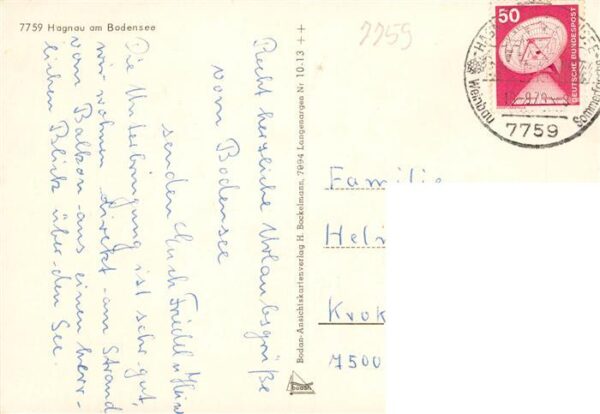 7759 Hagnau am Bodensee
Recht herzliche Urlaubsgrüße
vom Bodensee
senden Euch Friedel u.
Die Unterbringung ist sehr gut,
wir wohnen direkt am Strand
vom Balkon aus einen herr-
lichen Blick über den See.
Bodan-Ansichtskartenverlag H. Bockelmann, 7994 Langenargen Nr 10-13 ++
bodan
7759
50
DEUTSCHE BUNDESPOST
7759
Weindorf
Familie
Heli
Krok
7500